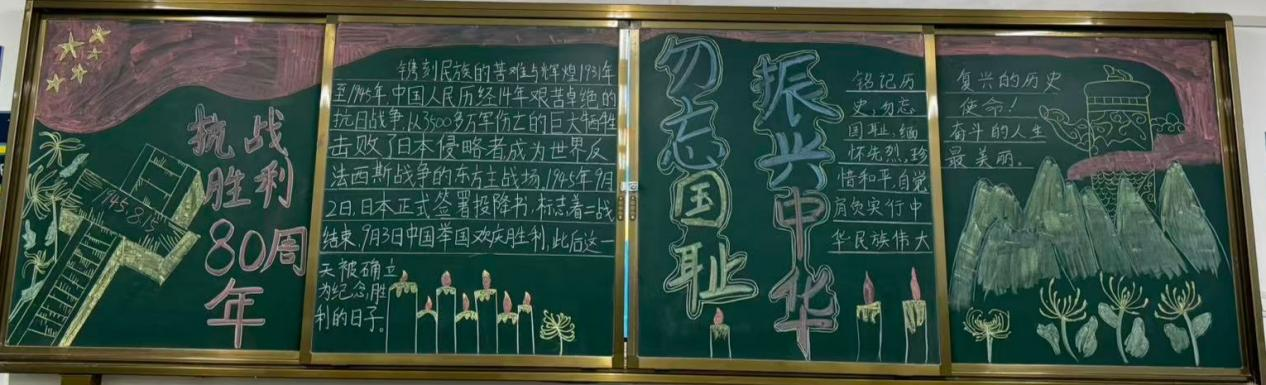 抗战
胜利
80周
年
1945.8.15
镌刻民族的苦难与辉煌1931年
至1945年,中国人民历经14年艰苦卓绝的
抗日战争,从3500多万军伤亡的巨大牺牲
击败了日本侵略者成为世界反
法西斯战争的东方主战场,1945年9月
2日,日本正式签署投降书,标志着二战
结束,9月3日中国举国欢庆胜利,此后这一
天被确立
为纪念胜
利的日子。
勿忘国耻
振兴中华
铭记历
史,勿忘
国耻,缅
怀先烈,珍
惜和平,自觉
肩负实行中
华民族伟大
复兴的历史
使命!
奋斗的人生
最美丽.